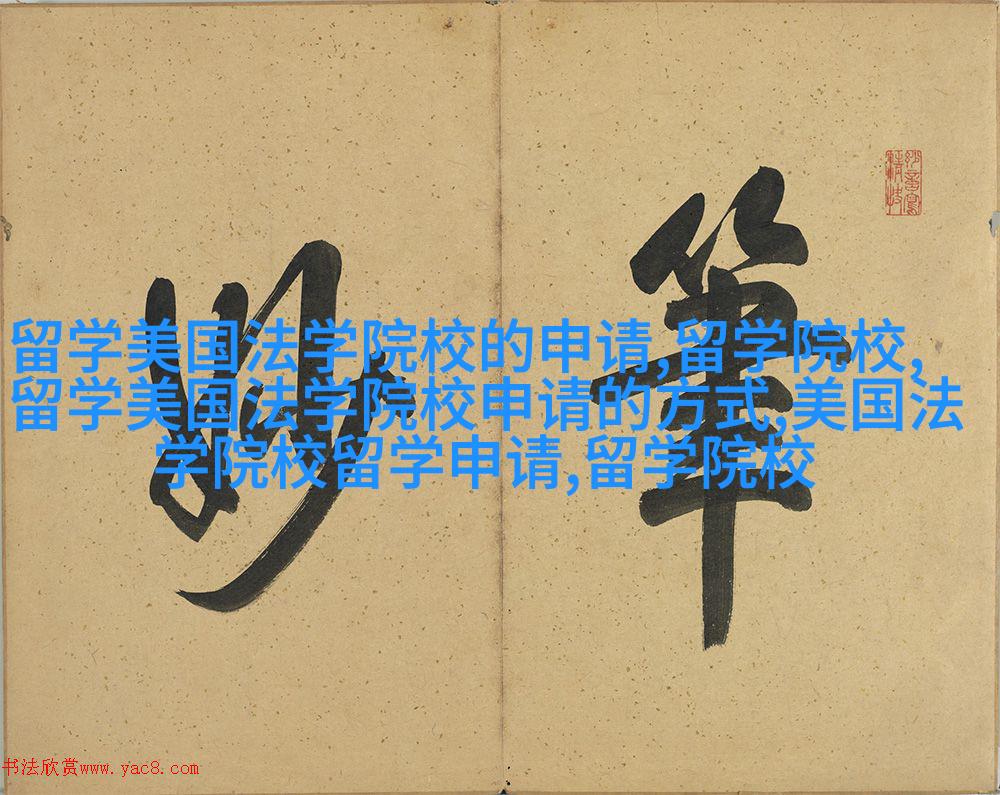 筆
妙
留学美国法学院校的申请,留学院校,
留学美国法学院校申请的方式,美国法
学院校留学申请,留学院校
书法欣赏www.yac8.com